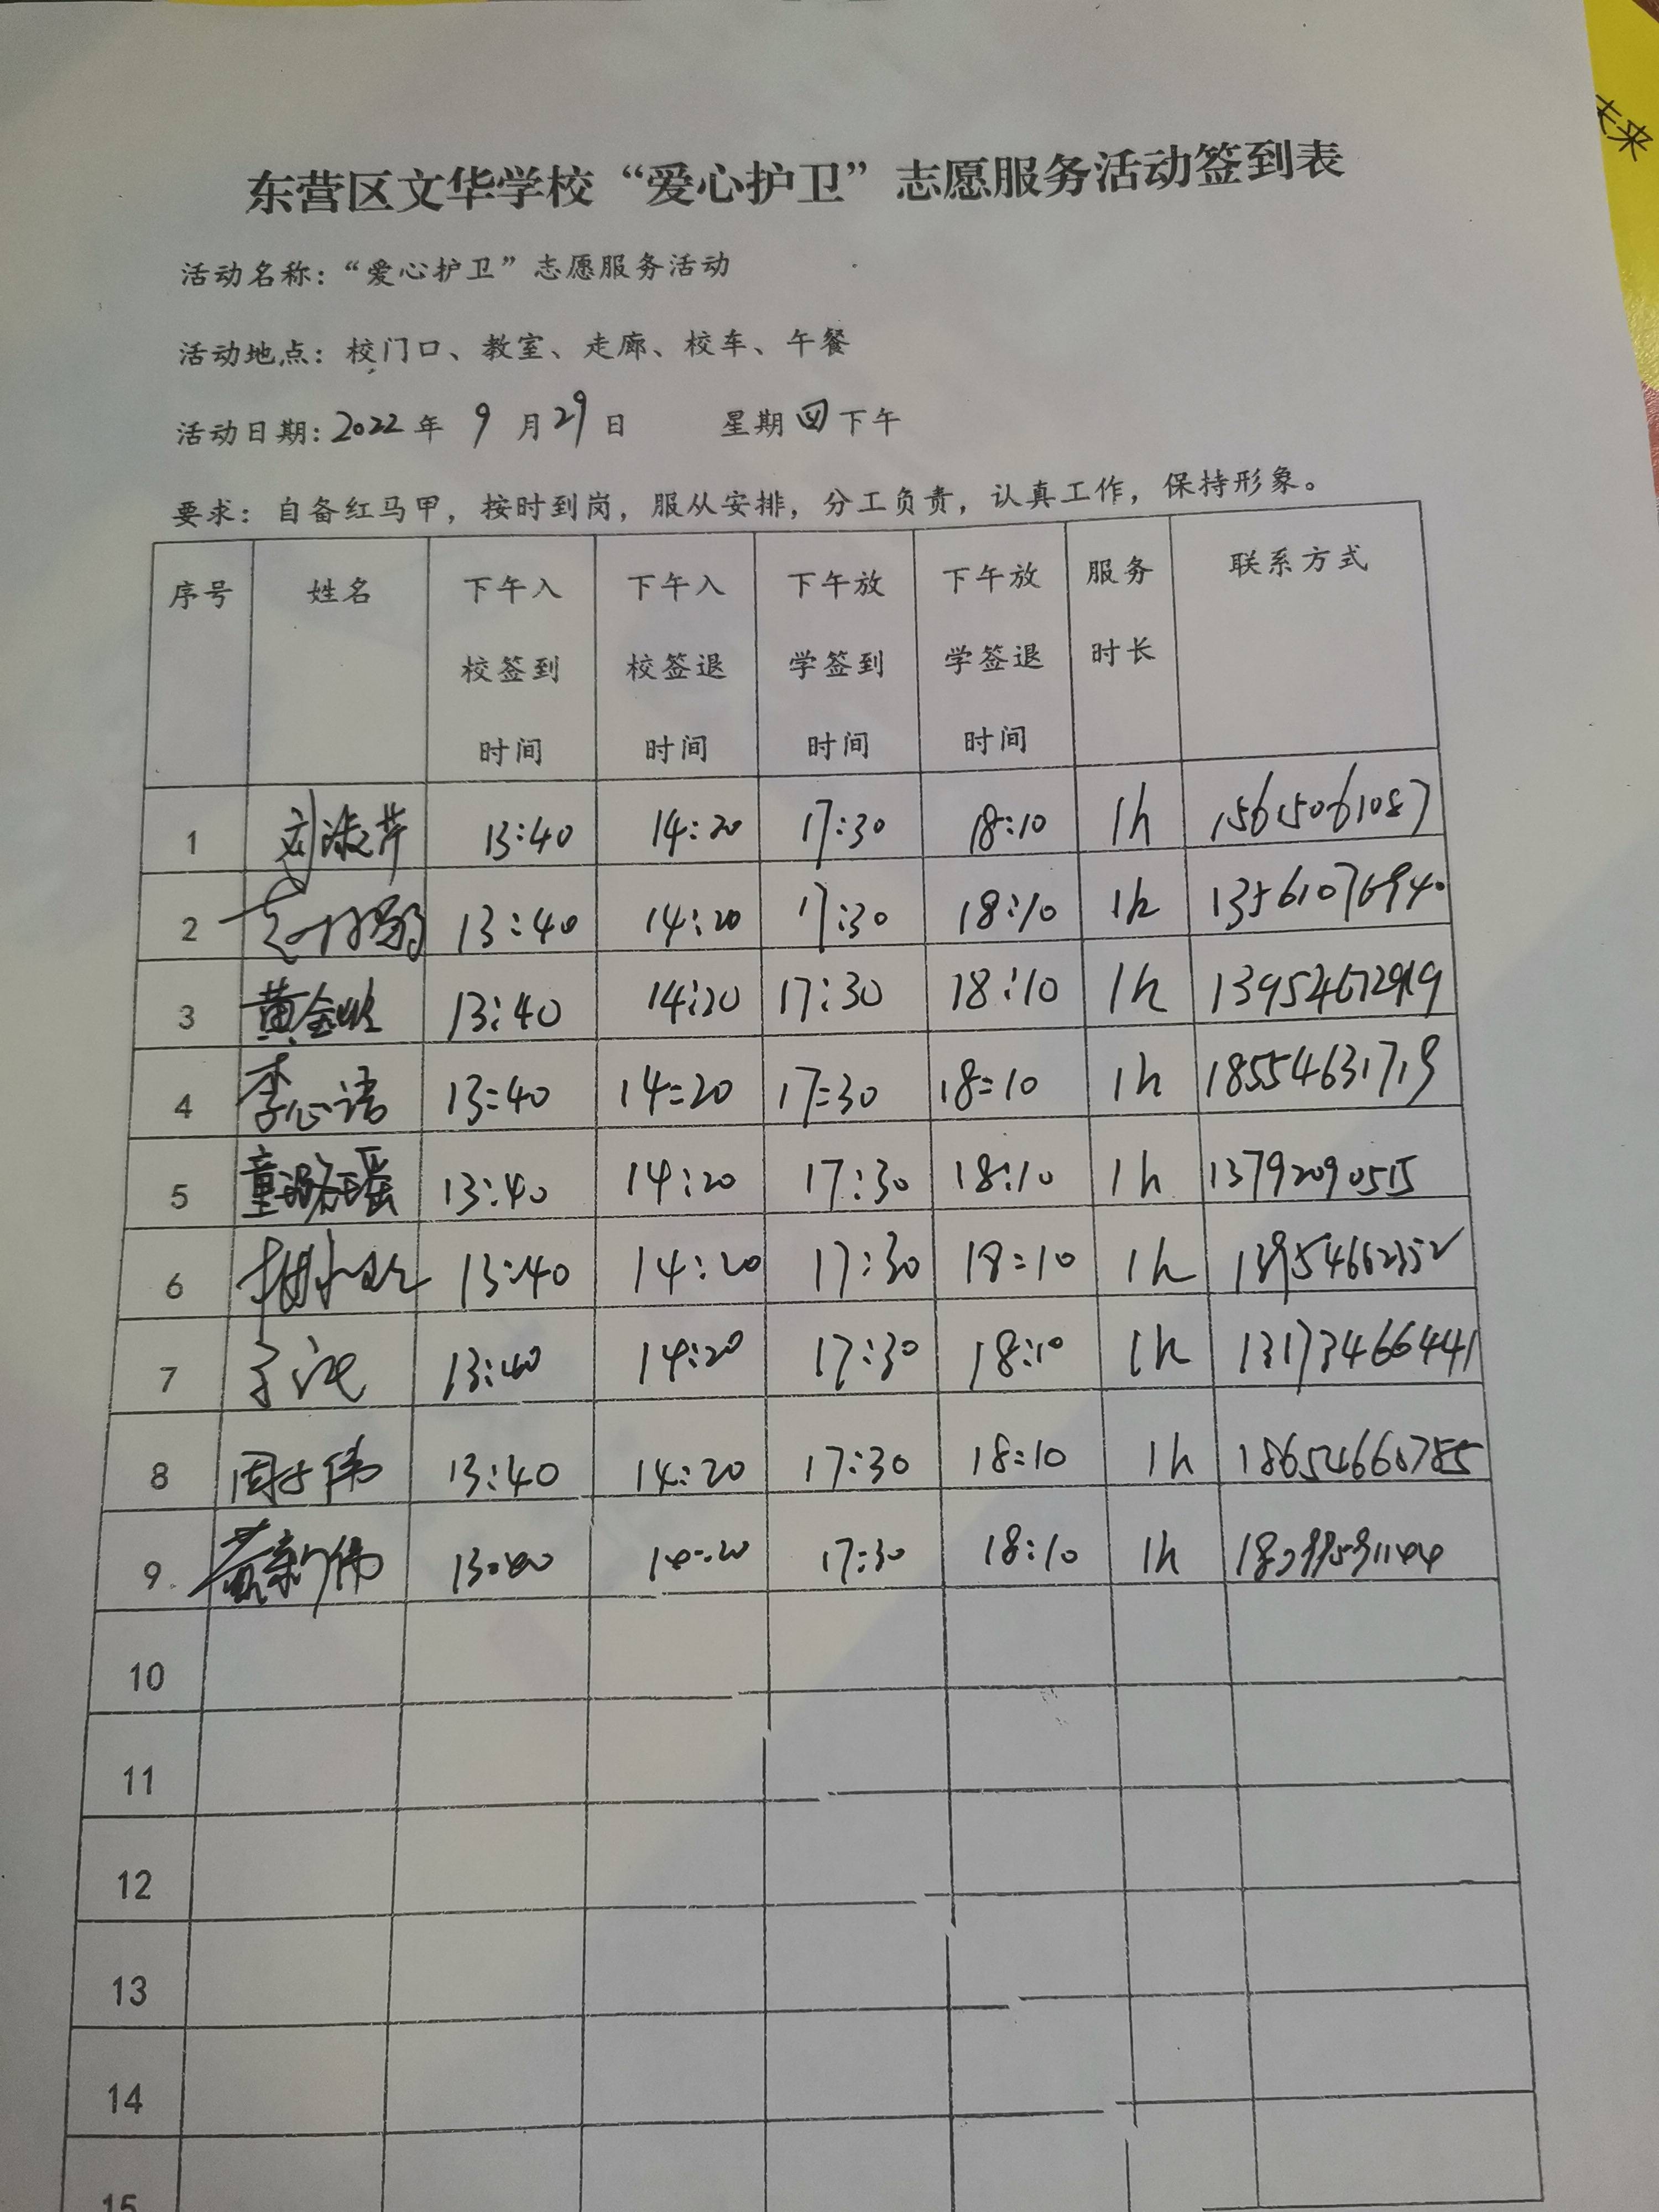 未来
东营区文华学校“爱心护卫”志愿服务活动签到表
活动名称：“爱心护卫”志愿服务活动
活动地点：校门口、教室、走廊、校车、午餐
活动日期：2022年 9月29日 星期四下午
要求：自备红马甲，按时到岗，服从安排，分工负责，认真工作，保持形象。
序号 姓名 下午入校签到时间 下午入校签退时间 下午放学签到时间 下午放学签退时间 服务时长 联系方式
1 刘淑芹 13:40 14:20 17:30 18:10 1h 15615061087
2 13:40 14:20 17:30 18:10 1h 13561076940
3 13:40 14:20 17:30 18:10 1h
4 李心语 13:40 14:20 17:30 18:10 1h 18554631719
5 13:40 14:20 17:30 18:10 1h 13792090515
6 13:40 14:20 17:30 18:10 1h 13954662352
7 13:40 14:20 17:30 18:10 1h 13173466441
8 13:40 14:20 17:30 18:10 1h 18652466785
9 13:40 14:20 17:30 18:10 1h
10
11
12
13
14
15